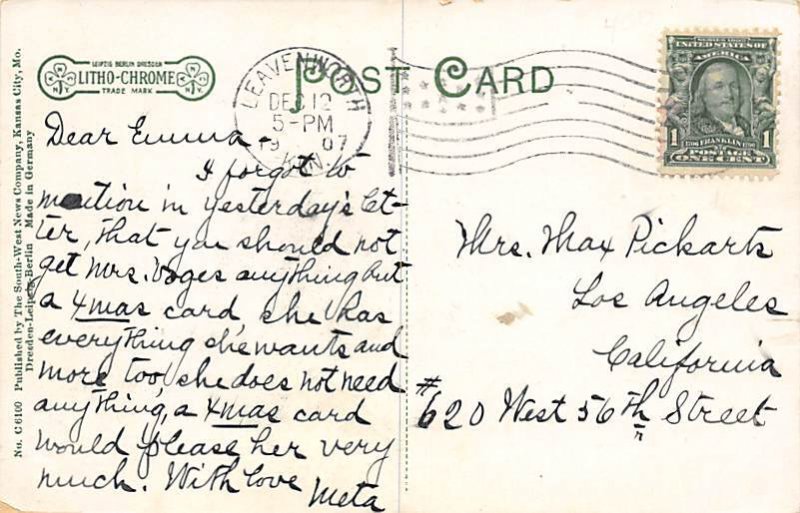 No. C 6100 Published by The South-West News Company, Kansas City, Mo.
Dresden-Leipzig-Berlin Made in Germany
LEIPZIG BERLIN DRESDEN
LITHO-CHROME
TRADE MARK
POST CARD
LEAVENWORTH
DEC 12
5-PM
1907
KAN.
UNITED STATES OF
AMERICA
1 1
1706 FRANKLIN 1790
POSTAGE
ONE CENT
Dear Emma -
I forgot to
mention in yesterday's let-
ter, that you should not
get Mrs. Voges anything but
a Xmas card, she has
everything she wants and
more too, she does not need
anything, a Xmas card
would please her very
much. With love
Meta
Mrs. Max Pickarts
Los Angeles
California
# 620 West 56th Street